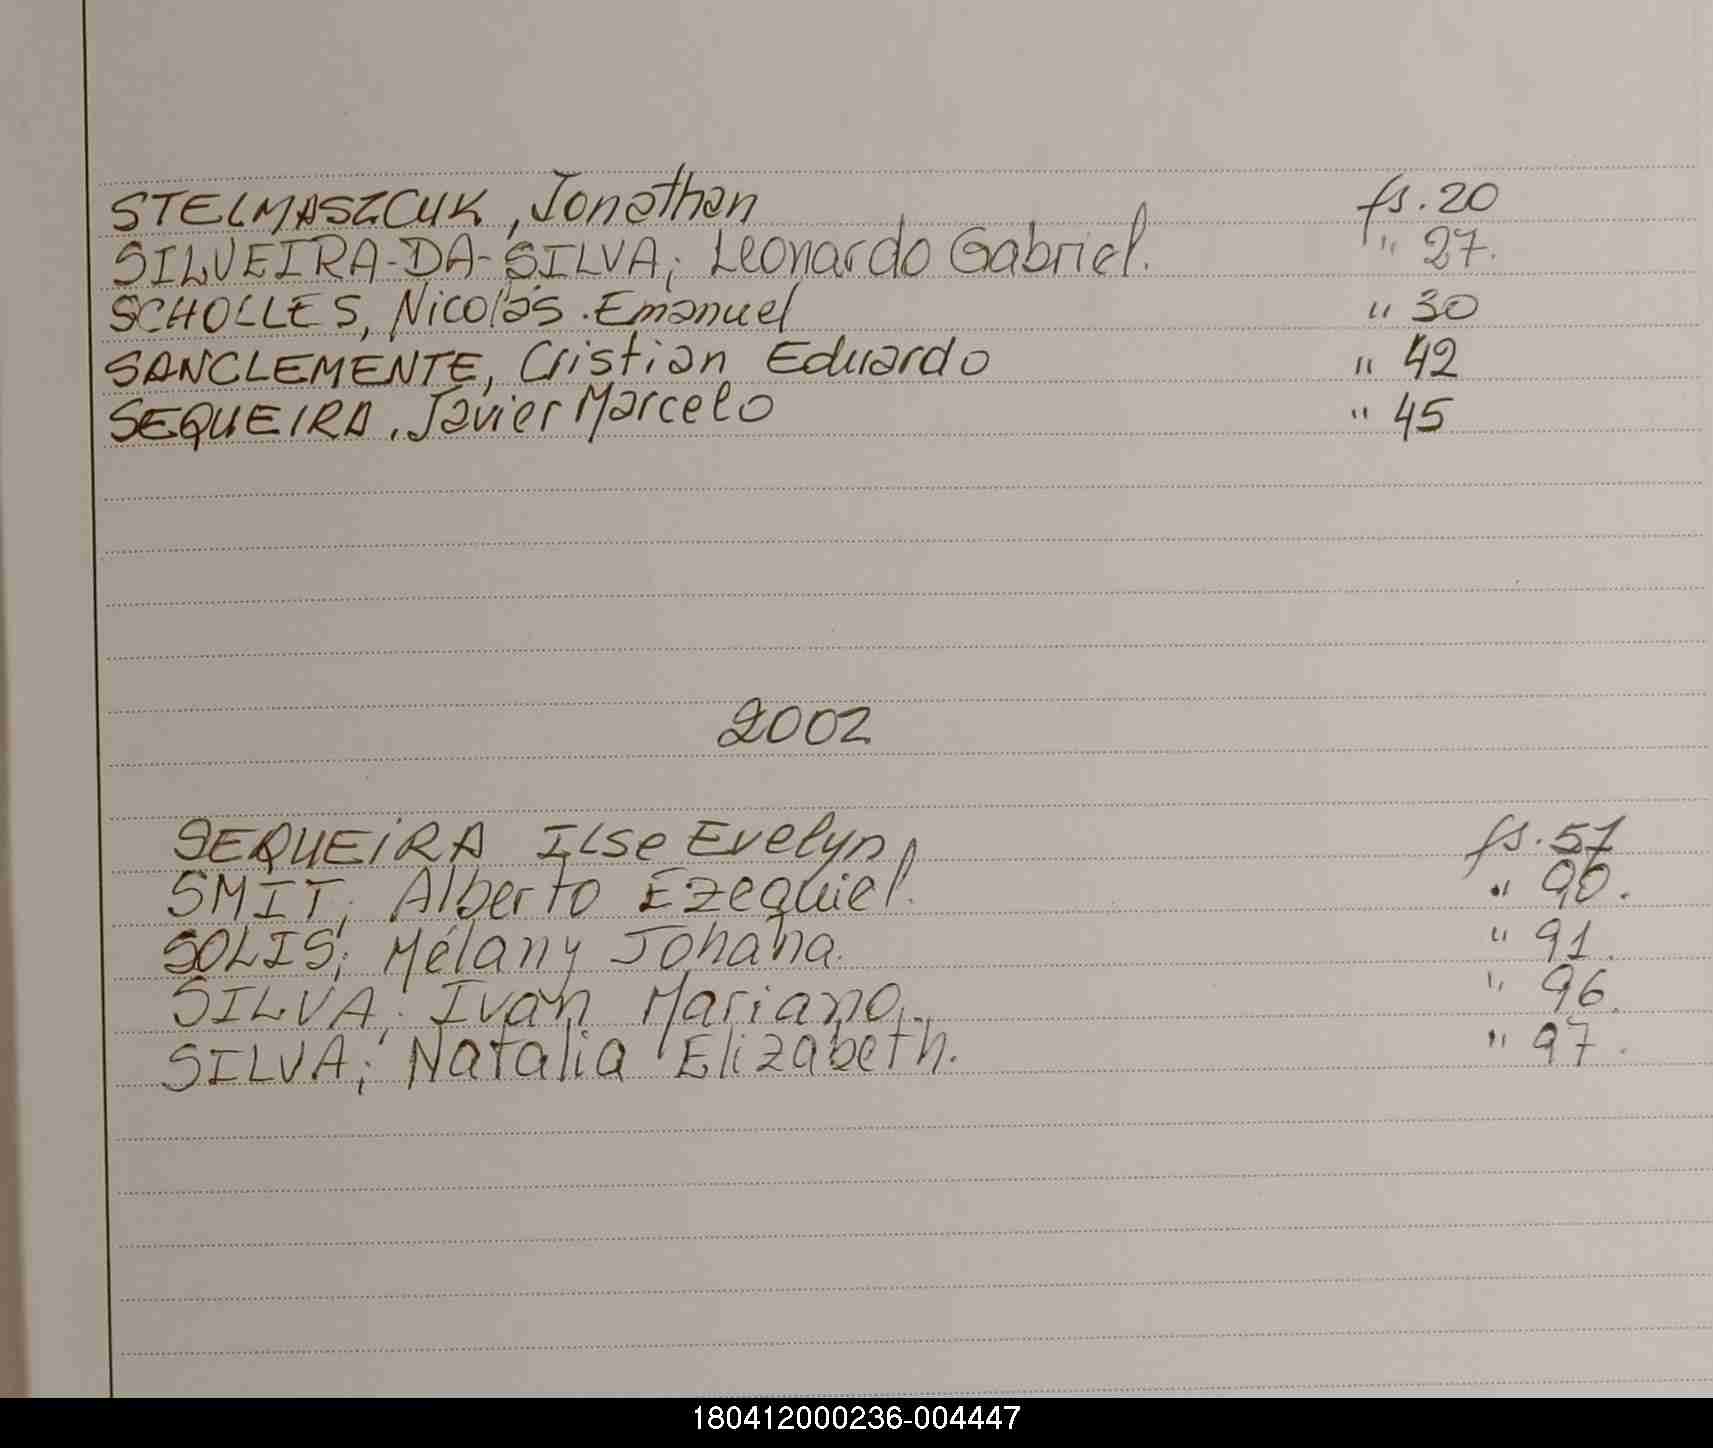 STELMASZCUK, Jonathan fs. 20
SILVEIRA-DA-SILVA; Leonardo Gabriel. " 27.
SCHOLLES, Nicolás Emanuel " 30
SANCLEMENTE, Cristian Eduardo " 42
SEQUEIRA, Javier Marcelo " 45
2002
SEQUEIRA Ilse Evelyn fs. 57
SMIT; Alberto Ezequiel. " 90.
SOLIS; Mélany Johana. " 91.
SILVA; Ivan Mariano. " 96.
SILVA; Natalia Elizabeth. " 97.
180412000236-004447